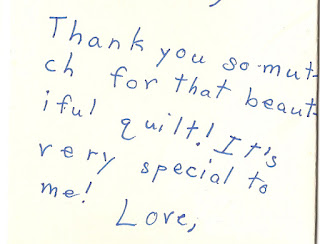 Thank you so mut-
ch for that beaut-
iful quilt! It's
very special to
me!
Love,